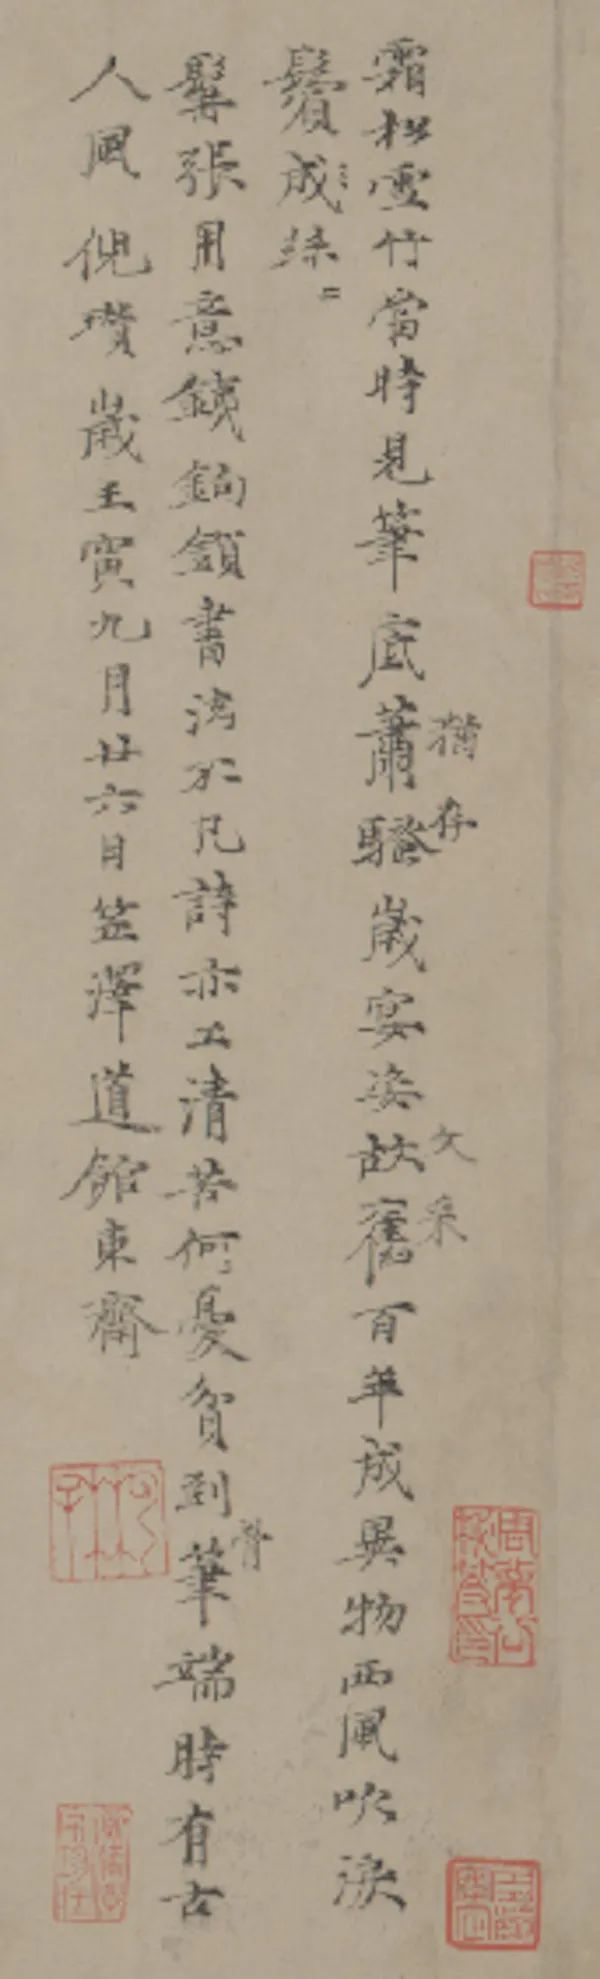 霜松雪竹當時見筆底蕭騷歲宴姿故舊百年成異物西風吹淚
猶存
文采
鬢成絲
髯張用意銕鉤鎖書法不凡詩亦工清苦何憂貧到筆端時有古
骨
人風 倪瓚 歲壬寅九月廿六日笠澤道館東齋